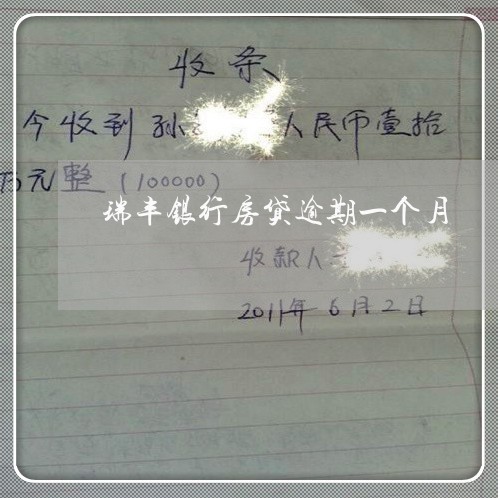 收条
今收到孙 人民币壹拾
万元整（100000）
瑞丰银行房贷逾期一个月
收款人
2011年6月2日